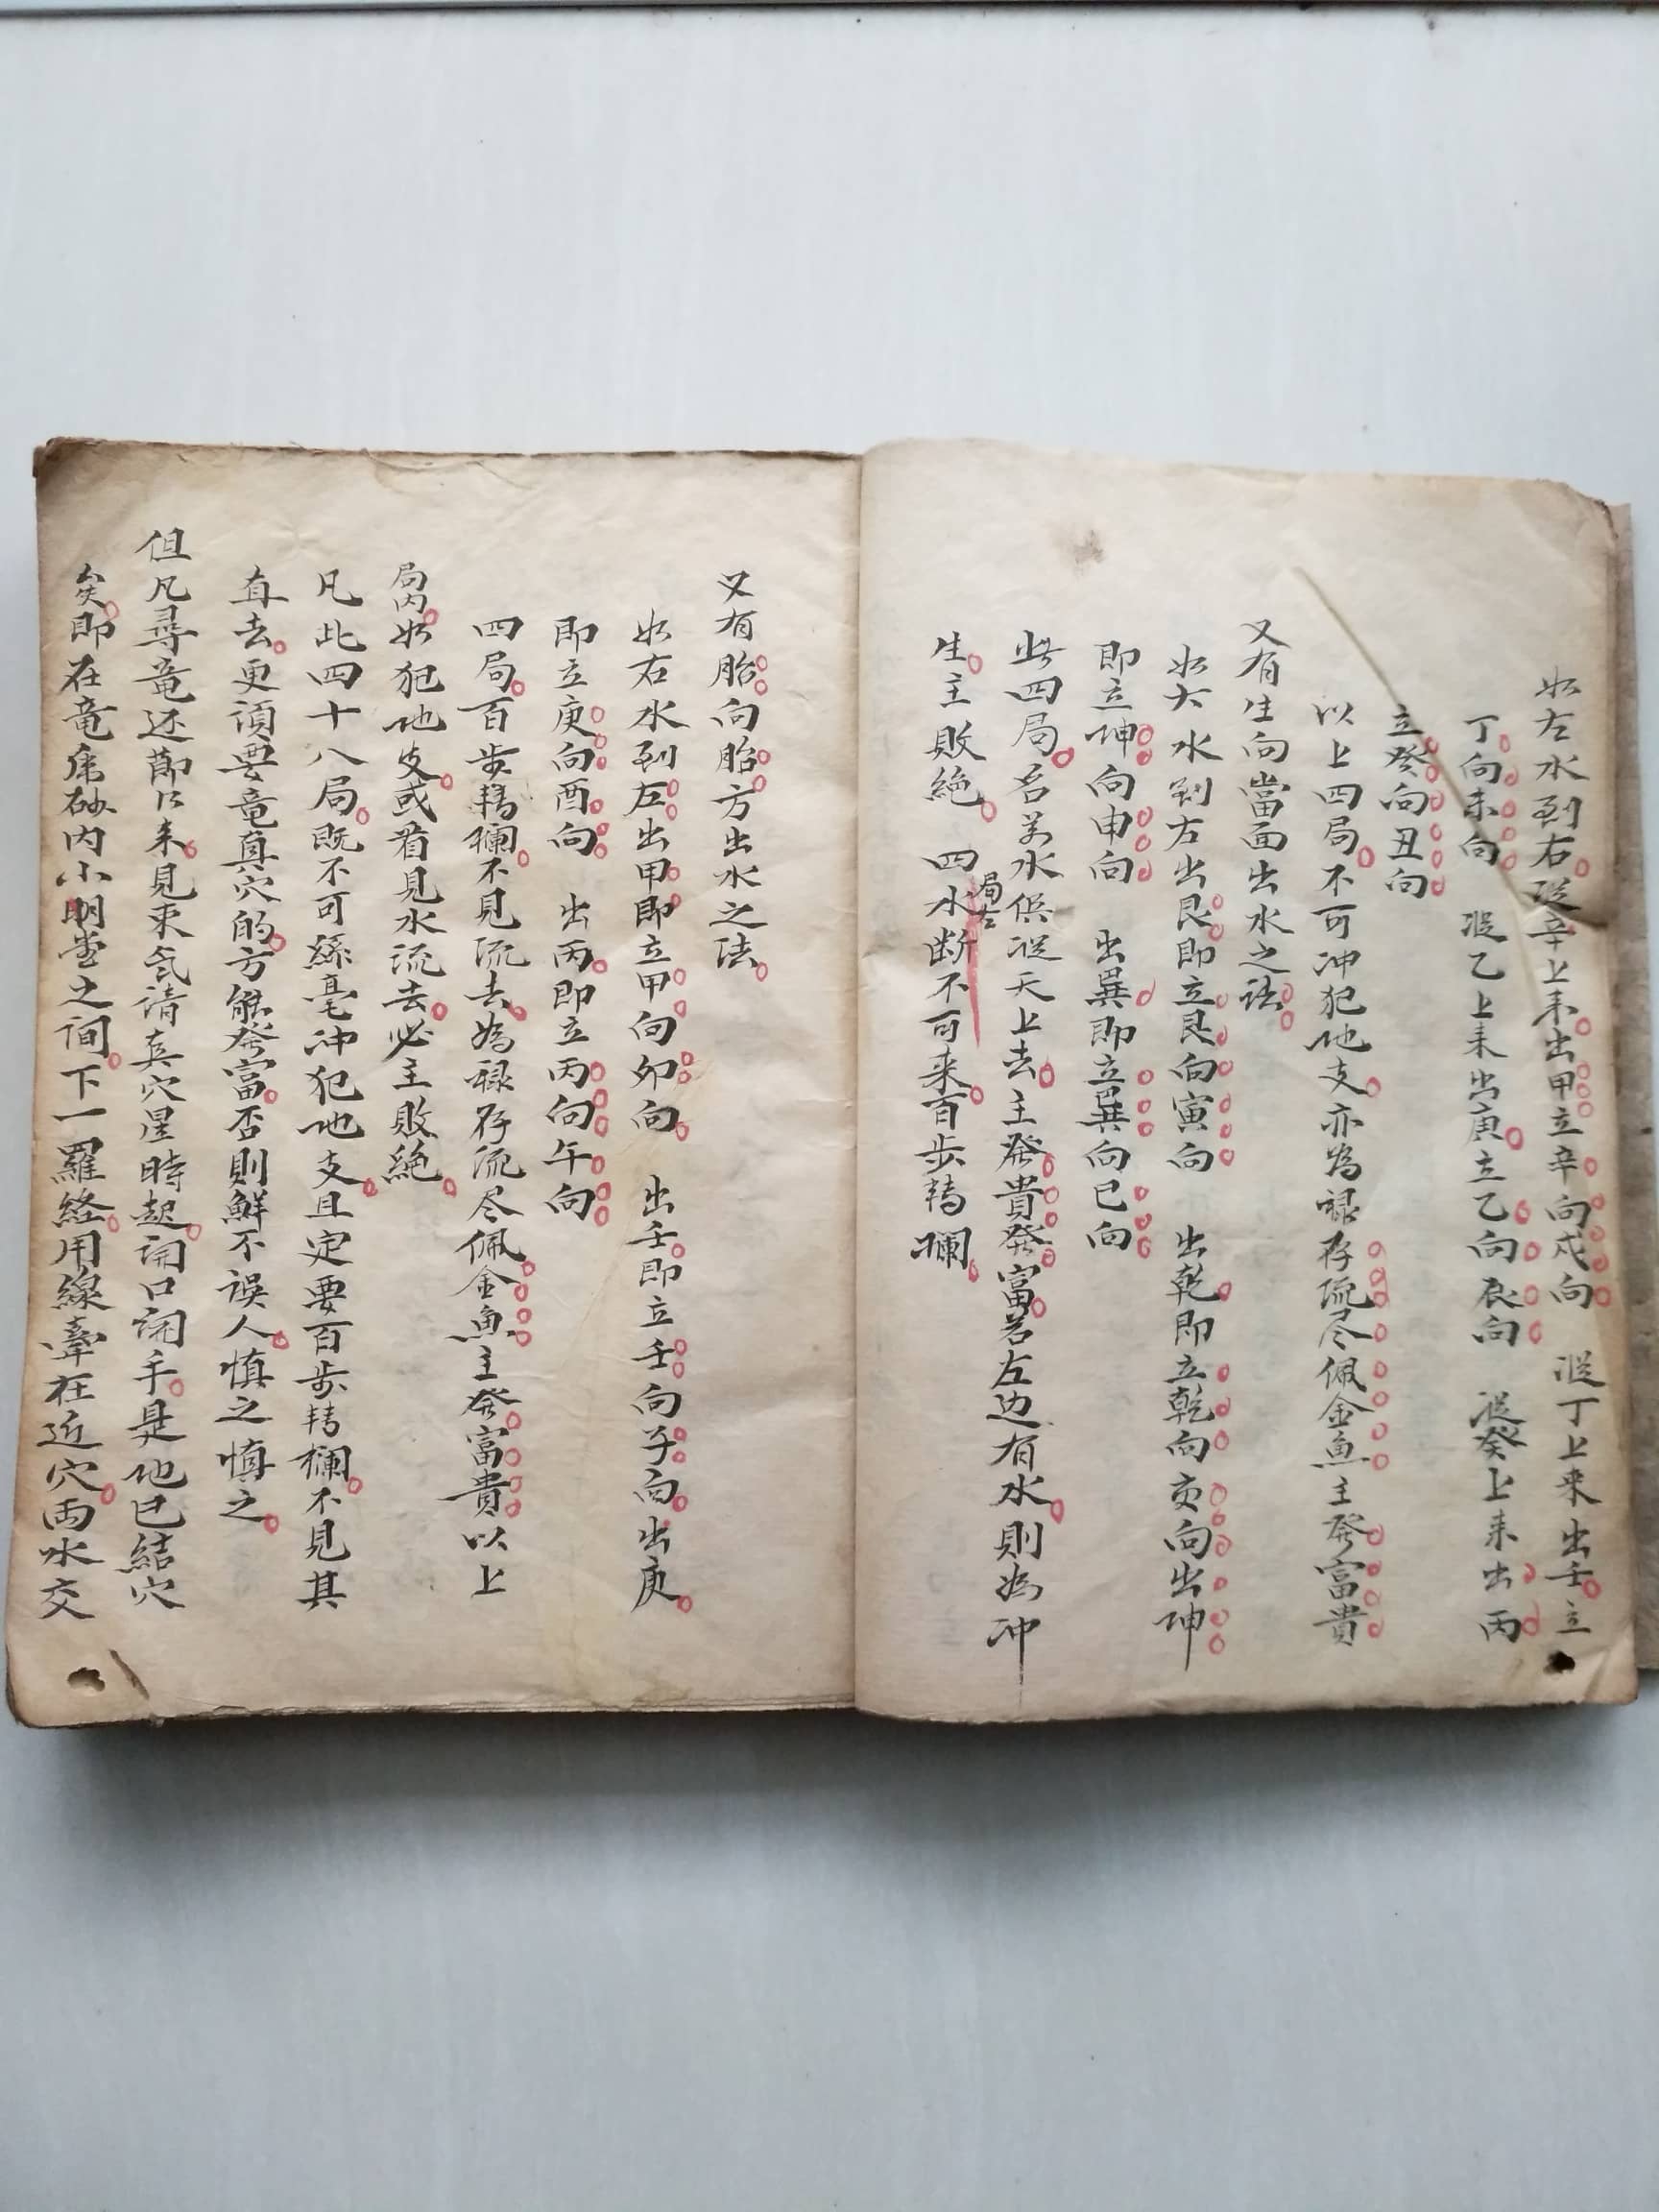 如左水到右從辛上来出甲立辛向戍向　從丁上来出壬立
丁向未向　從乙上来出庚立乙向辰向　從癸上来出丙
立癸向丑向
以上四局不可冲犯地支亦為禄存流尽佩金魚主發富貴
又有生向當面出水之法
如大水到左出艮即立艮向寅向　出乾即立乾向亥向出坤
即立坤向申向　出巽即立巽向巳向
此四局名為水俱從天上去主發貴發富若左边有水則為冲
生主敗絶　四水断不可来百步轉欄
局左
又有胎向胎方出水之法
如右水到左出甲即立甲向夘向　出壬即立壬向子向出庚
即立庚向酉向　出丙即立丙向午向
四局百步轉欄不見流去為禄存流尽佩金魚主發富貴以上
局内如犯地支或看見水流去必主敗絶
凡此四十八局既不可絲毫冲犯地支且定要百步轉欄不見其
直去更須要竜真穴的方能發富否則鮮不誤人慎之慎之
但凡尋竜还節口来見束気請真穴星時起開口開手是他已結穴
矣即在竜虎砂内小明堂之间下一羅経用線牽在近穴両水交